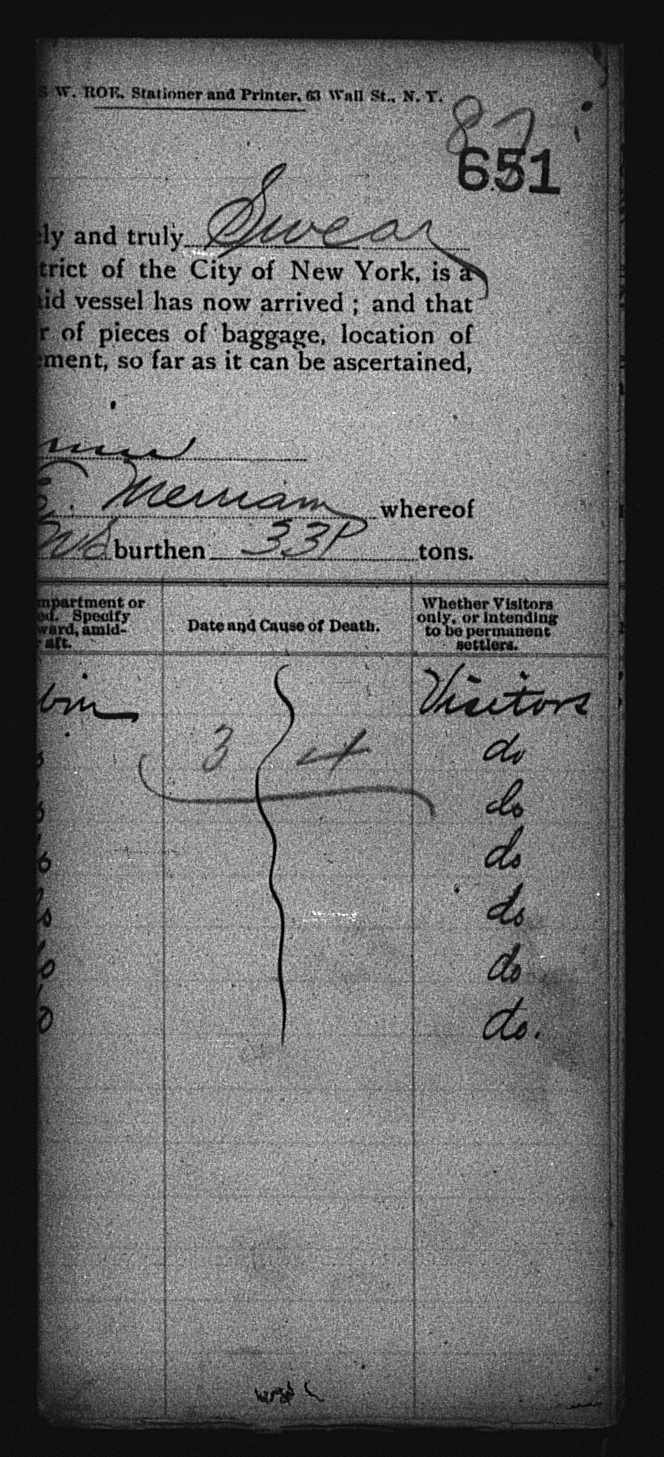 S W. ROE, Stationer and Printer, 63 Wall St., N. Y.
87
651
ly and truly Swear
trict of the City of New York, is a
id vessel has now arrived ; and that
r of pieces of baggage, location of
ment, so far as it can be ascertained,
E. Merriam whereof
burthen 33 tons.
mpartment or
ed. Specify
ward, amid-
aft.
Date and Cause of Death.
Whether Visitors
only, or intending
to be permanent
settlers.
bin Visitors
3 4 do
do
do
do
do
do.